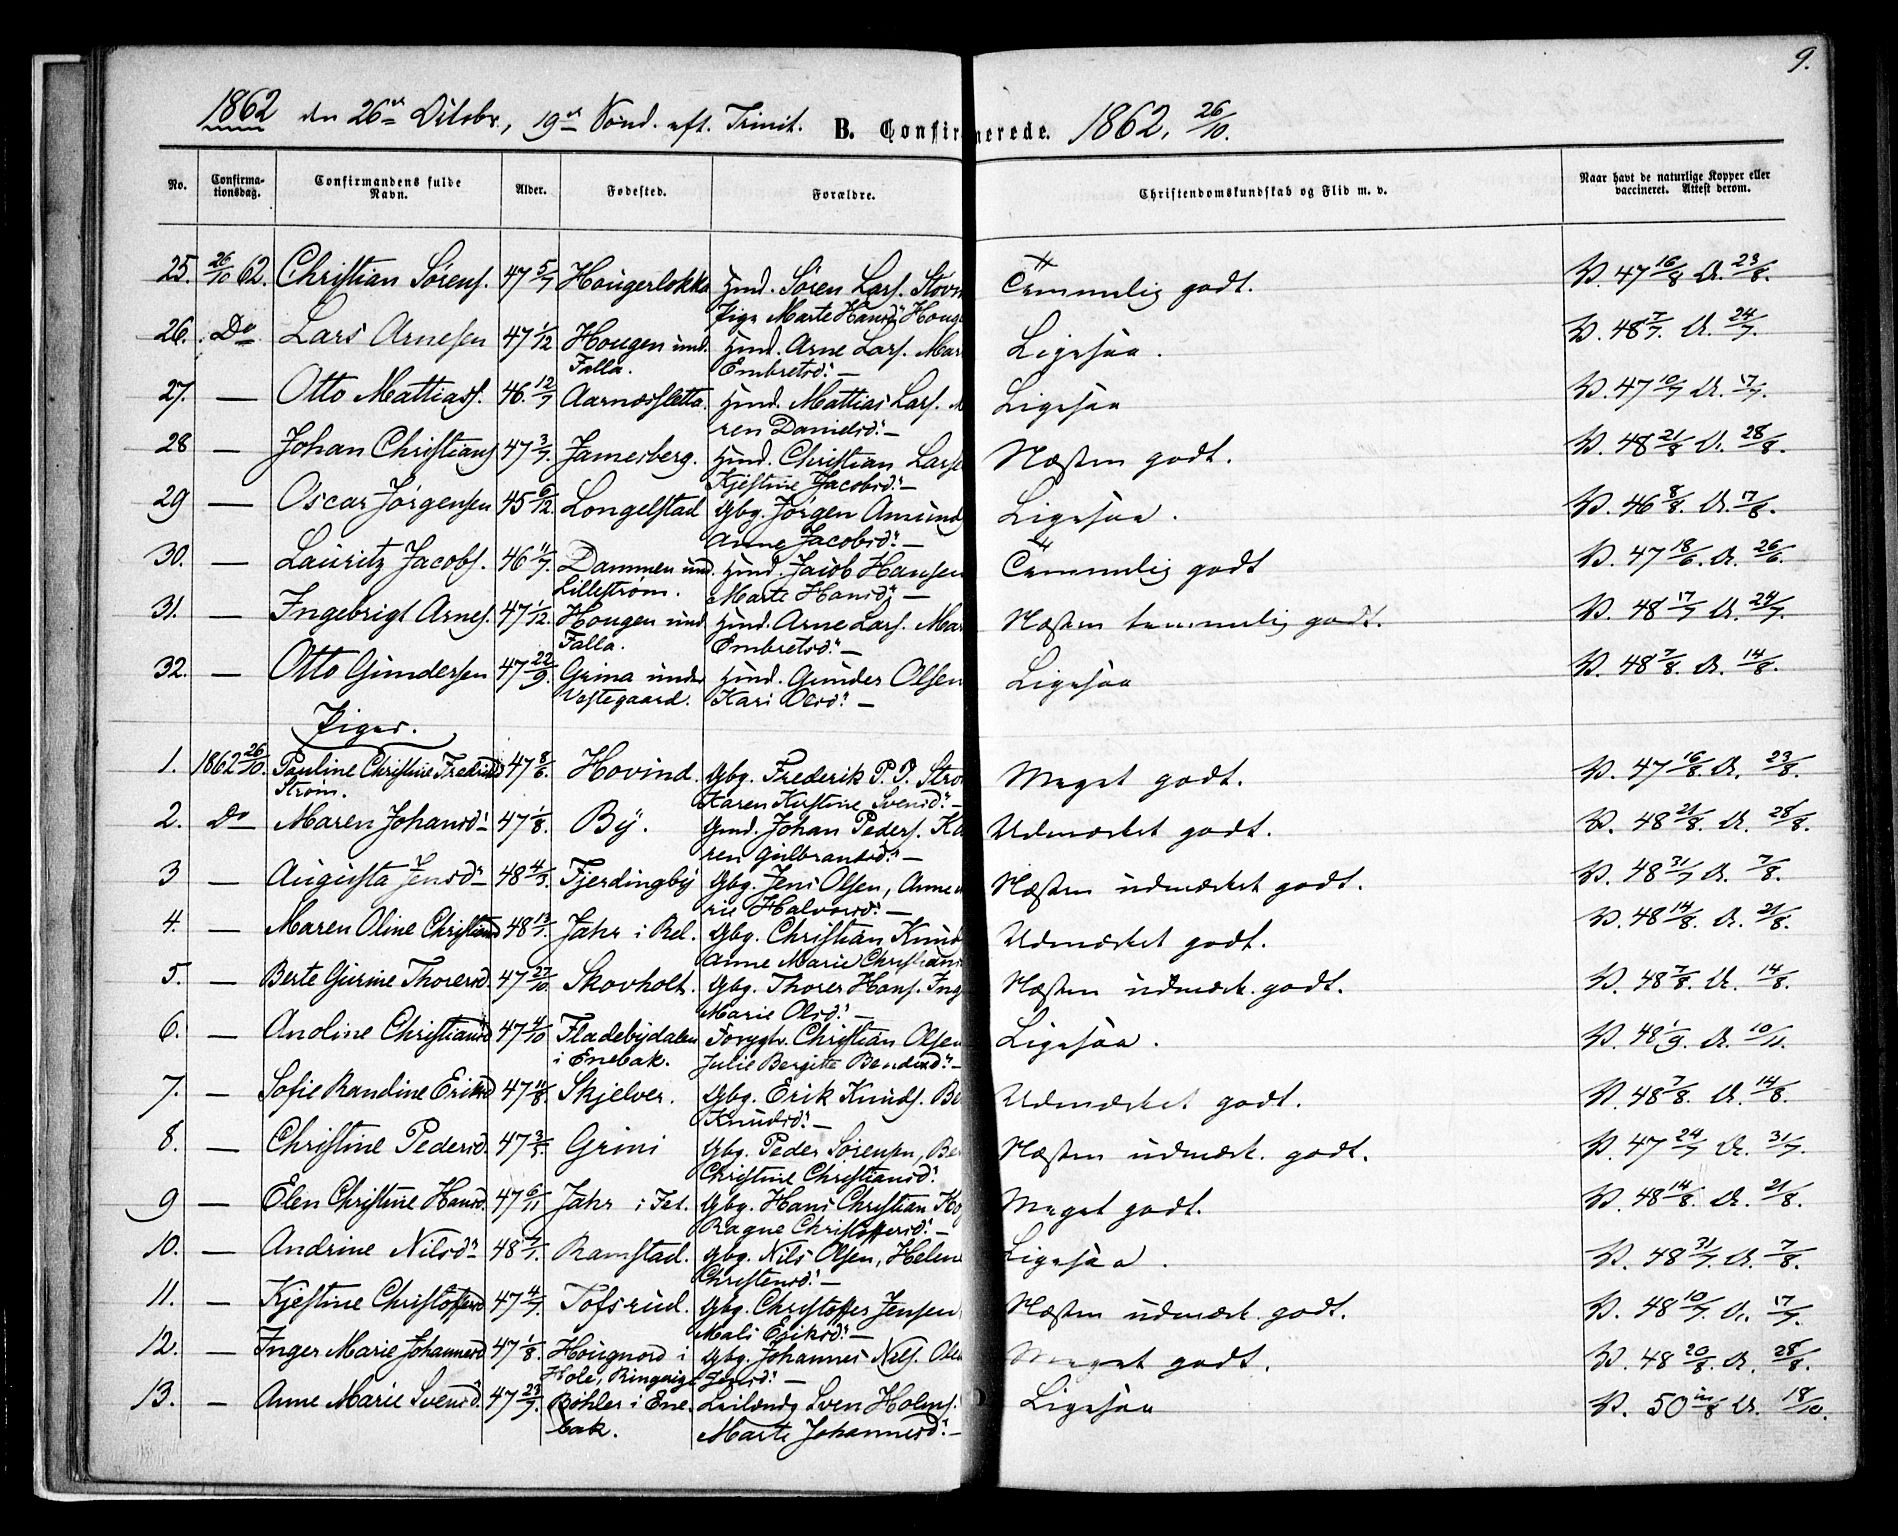 9.
1862 den 26de Octobr., 19de Sønd. eft. Trinit. B. Confirmerede. 1862, 26/10.
No. Confirmationsdag. Confirmandens fulde Navn. Alder. Fødested. Forældre. Christendomskundskab og Flid m. v. Naar havt de naturlige Kopper eller vaccineret. Attest derom.
25. 26/10 62. Christian Sørens. 47 5/7 Hougerløkka Hmd. Søren Lars. Stovn Temmelig godt. V. 47 16/8 A. 23/8.
Pige Marte Hansd. Houg
26. Do Lars Arnesen 47 1/12 Hougen und. Hmd. Arne Lars. Mar Ligesaa. V. 48 7/7. A. 24/7.
Falla. Embretsd. —
27. — Otto Mattiass. 46. 12/7 Aarnæssletta. Hmd. Mattias Lars. M Ligesaa V. 47 10/7 A. 17/7.
ren Danielsd. —
28 — Johan Christians 47 3/7. Jamesberg. Hmd. Christian Larse Næsten godt. V. 48 21/8 A. 28/8.
Kjestine Jacobsd. —
29 — Oscar Jørgensen 45 6/12. Longelstad Gbg. Jørgen Amund Ligesaa. V. 46 8/8. A. 17/8.
Anne Jacobsd. —
30. — Lauritz Jacobs. 46 11/7. Dammen und. Hmd. Jacob Hansen Temmelig godt V. 47 18/6. A. 26/6.
Lillestrøm. Marte Hansd. —
31. — Ingebrigt Arnes. 47 1/12. Hougen und Hmd. Arne Lars. Mar Næsten temmelig godt. V. 48 17/7 A. 24/7.
Falla. Embretsd. —
32. — Otto Gundersen 47 22/9. Grina under Hmd. Gunder Olsen Ligesaa V. 48 7/8. A. 14/8.
Vestegaard. Kari Olsd. —
Piger.
1. 1862 26/10. Pauline Christine Fredriks 47 8/6. Hovind. Gbg. Frederik P. P. Strø Meget godt. V. 47 16/8. A. 23/8.
Strøm. Karen Kirstine Svensd. —
2. Do Maren Johansd. 47 1/8. By. Gmd. Johan Peders. Ka Udmærket godt. V. 48 21/8. A. 28/8.
ren Gulbrandsd. —
3 — Augusta Jensd. 48 4/3. Fjerdingby Gbg. Jens Olsen, Anne Næsten udmærket godt. V. 48 31/7 A. 7/8.
rie Halvorsd. —
4. — Maren Oline Christiansd 48 13/1. Jahr i Rel. Gbg. Christian Knud Udmærket godt. V. 48 14/8. A. 21/8.
Anne Marie Christians
5. — Berte Gurine Thoresd 47 27/10 Skovholt. Gbg. Thorer Hans. Ing Næsten udmærk. godt. V. 48 7/8. A. 14/8.
Marie Olsd. —
6. — Anoline Christiansd 47 4/10 Fladebydalen Forygtv. Christian Olsen Ligesaa. V. 48 1/9. A. 10/11.
i Enebak. Julie Bergitte Bendixd. —
7. — Sofie Randine Eriksd 47 11/8 Skjelver. Gbg. Erik Knuds. Be Udmærket godt. V. 48 7/8. A. 14/8.
Knudsd. —
8. — Christine Pedersd. 47 3/5. Grini Gbg. Peder Sørensen, Be Næsten udmærk. godt. V. 47 24/7 A. 31/7.
Christine Christiansd.
9 — Elen Christine Hansd. 47 6/11 Jahr i Fet. Gbg. Hans Christian K Meget godt. V. 48 14/8. A. 21/8.
Ragne Christoffersd. —
10. — Andrine Nilsd. 48 4/1. Ramstad. Gbg. Nils Olsen, Helene Ligesaa. V. 48 31/7. A. 7/8.
Christensd. —
11. — Kjestine Christoffersd 47 4/7. Tofsrud. Gbg. Christoffer Jensen Næsten udmærk. godt. V. 48 10/7 A. 17/7.
Mali Eriksd. —
12. — Inger Marie Johannesd 47 1/8. Hougnord i Gbg. Johannes Nels. Ole Meget godt. V. 48 20/8. A. 28/8.
Hole, Ringerige Jensd. —
13. — Anne Marie Svensd. 47 23/7. Bøhler i Ene Leilændg Sven Holms. Ligesaa V. 50 A. 18/10.
bak. Marte Johannesd. —